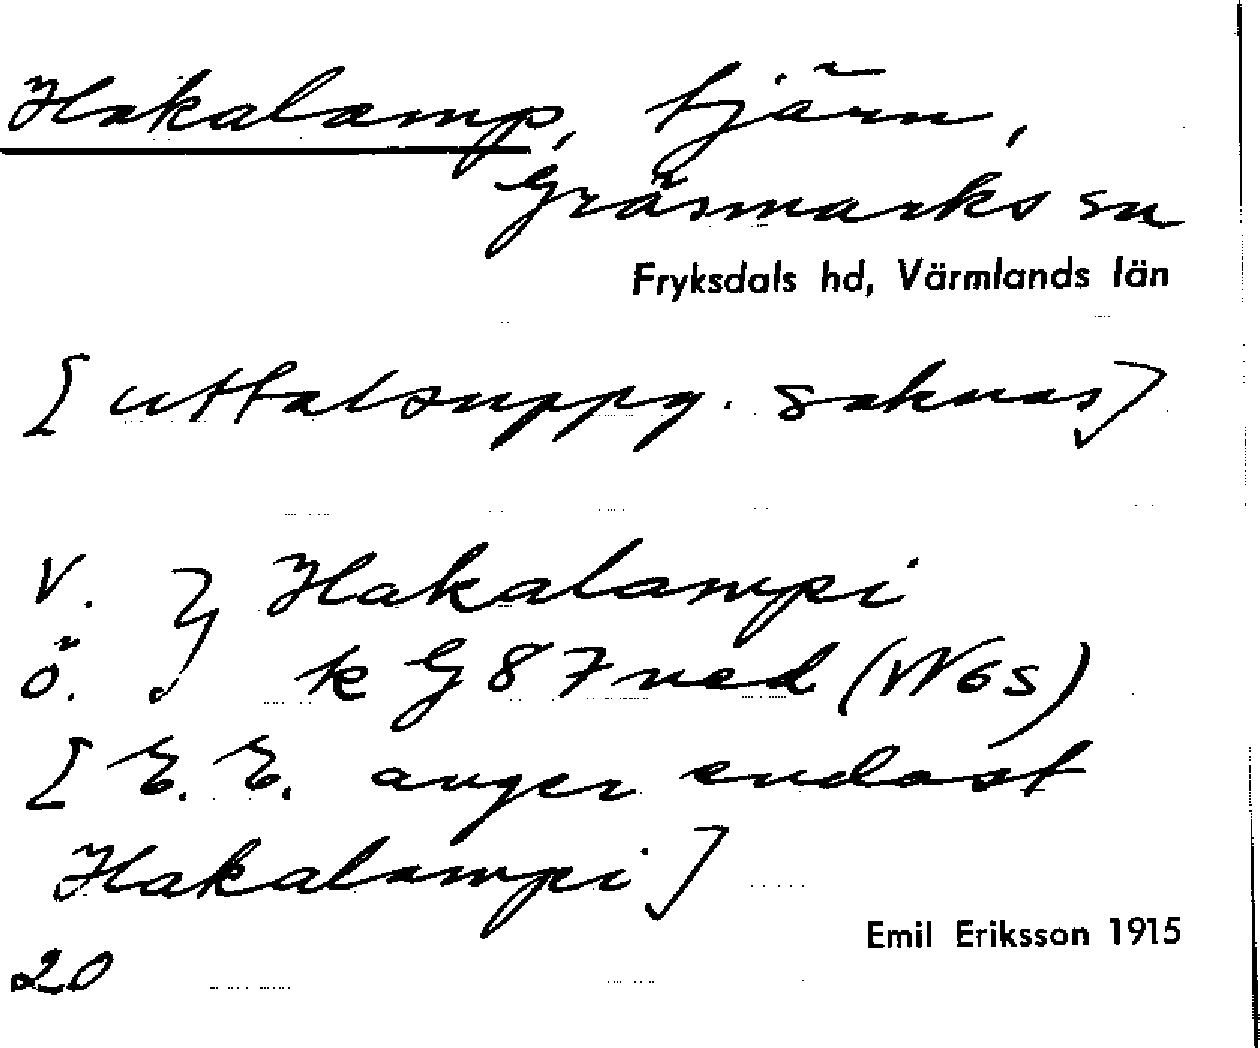 Hakalamp, tjärn,
Gräsmarks sn
Fryksdals hd, Värmlands län
[uttalsuppg. saknas]
V. } Hakalampi
Ö. } k G 87 ned (WGS)
[E. E. anger endast
Hakalampi]
Emil Eriksson 1915
20